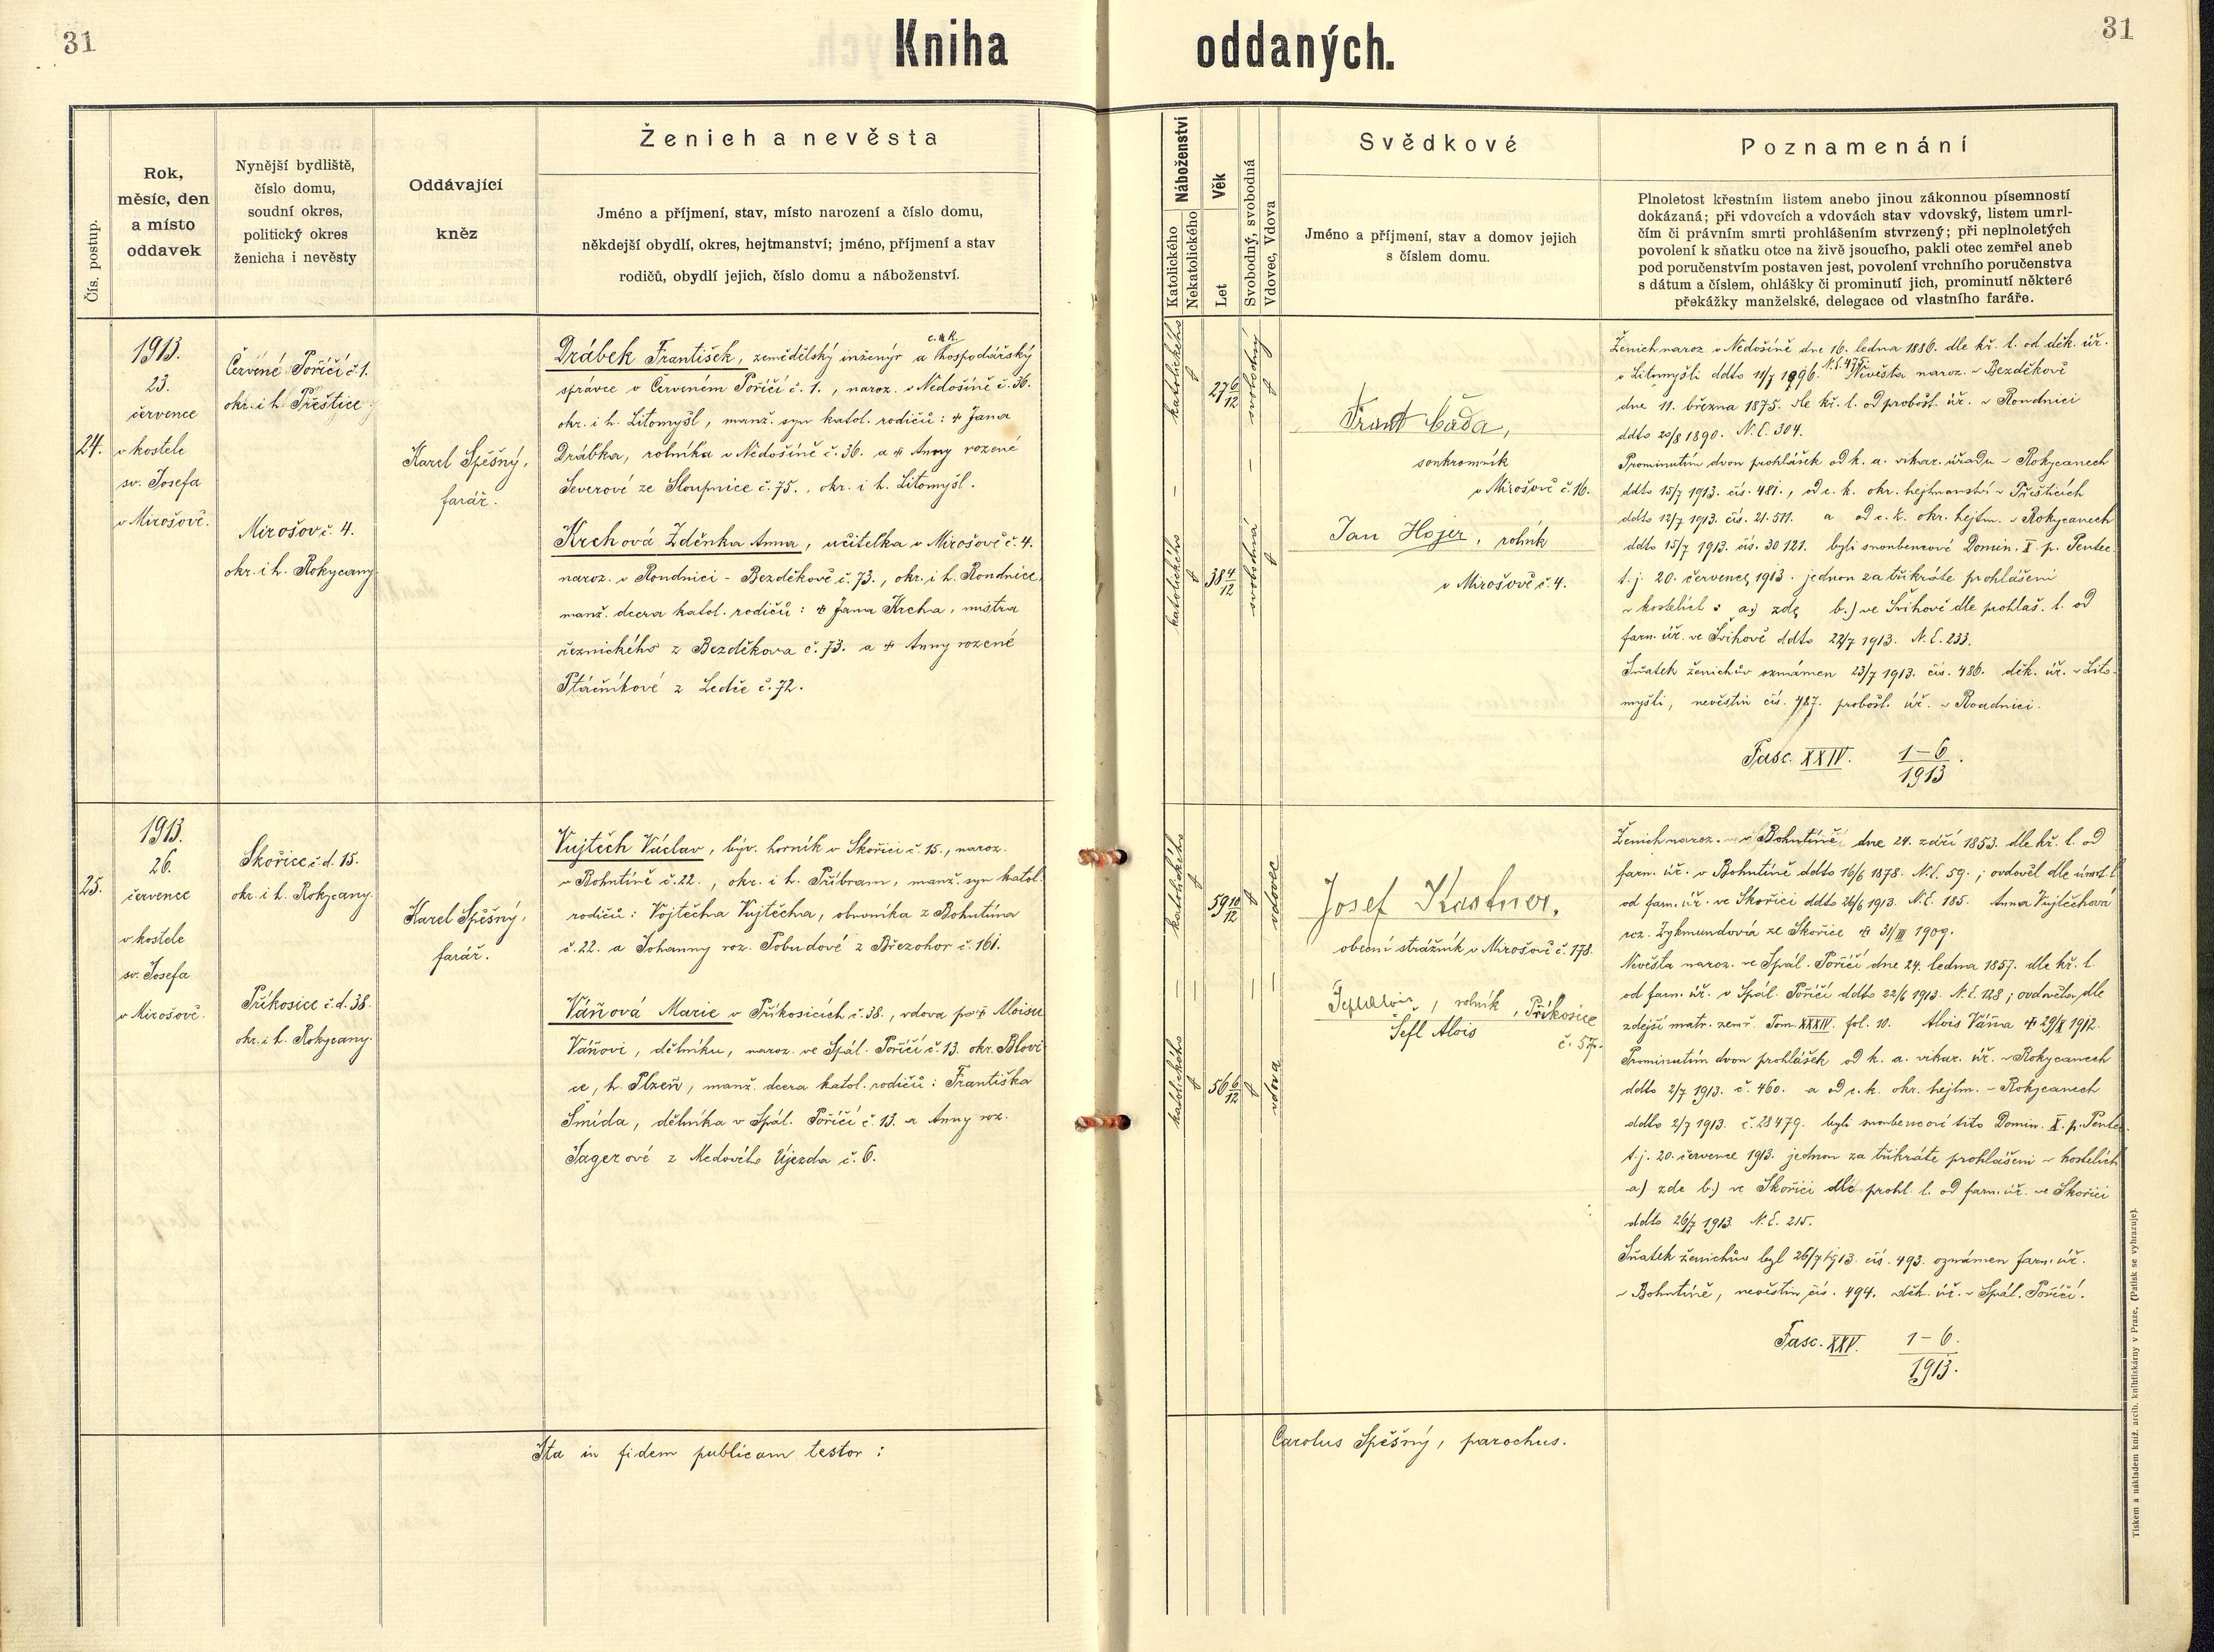 31
Kniha
oddaných.
31
Čís. postup.
Rok,
měsíc, den
a místo
oddavek
Nynější bydliště,
číslo domu,
soudní okres,
politický okres
ženicha i nevěsty
Oddávající
kněz
Ženich a nevěsta
Jméno a příjmení, stav, místo narození a číslo domu,
někdejší obydlí, okres, hejtmanství; jméno, příjmení a stav
rodičů, obydlí jejich, číslo domu a náboženství.
Náboženství
Katolického
Nekatolického
Věk
Let
Svobodný, svobodná
Vdovec, Vdova
Svědkové
Jméno a příjmení, stav a domov jejich
s číslem domu.
Poznamenání
Plnoletost křestním listem anebo jinou zákonnou písemností
dokázaná; při vdovcích a vdovách stav vdovský, listem umrl-
čím či právním smrti prohlášením stvrzený; při neplnoletých
povolení k sňatku otce na živě jsoucího, pakli otec zemřel aneb
pod poručenstvím postaven jest, povolení vrchního poručenstva
s dátum a číslem, ohlášky či prominutí jich, prominutí některé
překážky manželské, delegace od vlastního faráře.
24.
1913.
23.
července
v kostele
sv. Josefa
v Mirošově.
Červené Poříčí č. 1.
okr. i h. Přeštice
Mirošov č. 4.
okr. i h. Rokycany.
Karel Spěšný,
farář.
c. a k.
Drábek František, zemědělský inženýr a hospodářský
správce v Červeném Poříčí č. 1., naroz. v Nedošíně č. 36.
okr. i h. Litomyšl, manž. syn katol. rodičů: ✝ Jana
Drábka, rolníka v Nedošíně č. 36. a ✝ Anny rozené
Severové ze Sloupnice č. 75., okr. i h. Litomyšl.
Krchová Zděnka Anna, učitelka v Mirošově č. 4.
naroz. v Roudnici - Bezděkově č. 73., okr. i h. Roudnice,
manž. dcera katol. rodičů: ✝ Jana Krcha, mistra
řeznického z Bezděkova č. 73. a ✝ Anny rozené
Ptáčníkové z Ledče č. 72.
katolického
27 6/12
svobodný
katolického
38 4/12
svobodná
Frant Čáda,
soukromník
v Mirošově č. 16.
Jan Hojer, rolník
v Mirošově č. 4.
Ženich naroz. v Nedošíně dne 16. ledna 1886. dle kř. l. od děk. úř.
v Litomyšli ddto 11/7 1896. N. E. 475. Nevěsta naroz. v Bezděkově
dne 11. března 1875. dle kř. l. od probošt. úř. v Roudnici
ddto 20/8 1890. N. E. 304.
Prominutím dvou prohlášek od k. a. vikar. úřadu v Rokycanech
ddto 15/7 1913. čís. 481., od c. k. okr. hejtmanství v Přešticích
ddto 12/7 1913. čís. 21.511. a od c. k. okr. hejtm. v Rokycanech
ddto 15/7 1913. čís. 30121. byli snoubencové Domin. X p. Pentec.
t. j. 20. července 1913. jednou za třikráte prohlášeni
v kostelích: a.) zde b.) ve Švihově dle prohláš. l. od
farn. úř. ve Švihově ddto 22/7 1913. N. E. 233.
Sňatek ženichův oznámen 23/7 1913. čís. 486. děk. úř. v Lito-
myšli, nevěstin čís. 487. probošt. úř. v Roudnici.
Fasc. XXIV. 1-6/1913.
25.
1913.
26.
července
v kostele
sv. Josefa
v Mirošově.
Skořice č. d. 15.
okr. i h. Rokycany.
Příkosice č. d. 38.
okr. i h. Rokycany.
Karel Spěšný,
farář.
Vujtěch Václav, býv. horník v Skořici č. 15., naroz.
v Bohutíně č. 22., okr. i h. Příbram, manž. syn katol.
rodičů: Vojtěcha Vujtěcha, obuvníka z Bohutína
č. 22. a Johanny roz. Pobudové z Březohor č. 161.
Váňová Marie v Příkosicích č. 38., vdova po ✝ Aloisu
Váňovi, dělníku, naroz. ve Spál. Poříčí č. 13. okr. Blovi-
ce, h. Plzeň, manž. dcera katol. rodičů: Františka
Šmída, dělníka v Spál. Poříčí č. 13. a Anny roz.
Jagerové z Medového Újezda č. 6.
katolického
59 10/12
vdovec
katolického
56 6/12
vdova
Josef Kastner,
obecní strážník v Mirošově č. 178.
rolník, Příkosice
Šefl Alois
č. 57.
Ženich naroz. v Bohutíně dne 24. září 1853. dle kř. l. od
farn. úř. v Bohutíně ddto 16/6 1878. N. E. 59.; ovdověl dle úmrt. l.
od farn. úř. ve Skořici ddto 26/6 1913. N. E. 185. Anna Vujtěchová
roz. Zykmundová ze Skořice ✝ 31/III 1909.
Nevěsta naroz. ve Spál. Poříčí dne 24. ledna 1857. dle kř. l.
od farn. úř. v Spál. Poříčí ddto 22/6 1913. N. E. 128; ovdověla dle
zdejší matr. zemř. Tom. XXXIV. fol. 10. Alois Váňa ✝ 29/X 1912.
Prominutím dvou prohlášek od k. a. vikar. úř. v Rokycanech
ddto 2/7 1913. č. 460. a od c. k. okr. hejtm. v Rokycanech
ddto 2/7 1913. č. 28479. byli snoubencové tito Domin. X. p. Pentec.
t. j. 20. července 1913. jednou za třikráte prohlášeni v kostelích
a) zde b.) ve Skořici dle prohl. l. od farn. úř. ve Skořici
ddto 26/7 1913. N. E. 215.
Sňatek ženichův byl 26/7 1913. čís. 493. oznámen farn. úř.
v Bohutíně, nevěstin čís. 494. děk. úř. v Spál. Poříčí.
Fasc. XXV. 1-6./1913.
Ita in fidem publicam testor:
Carolus Spěšný, parochus.
Tiskem a nákladem kníž. arcib. knihtiskárny v Praze. (Patisk se vyhrazuje).